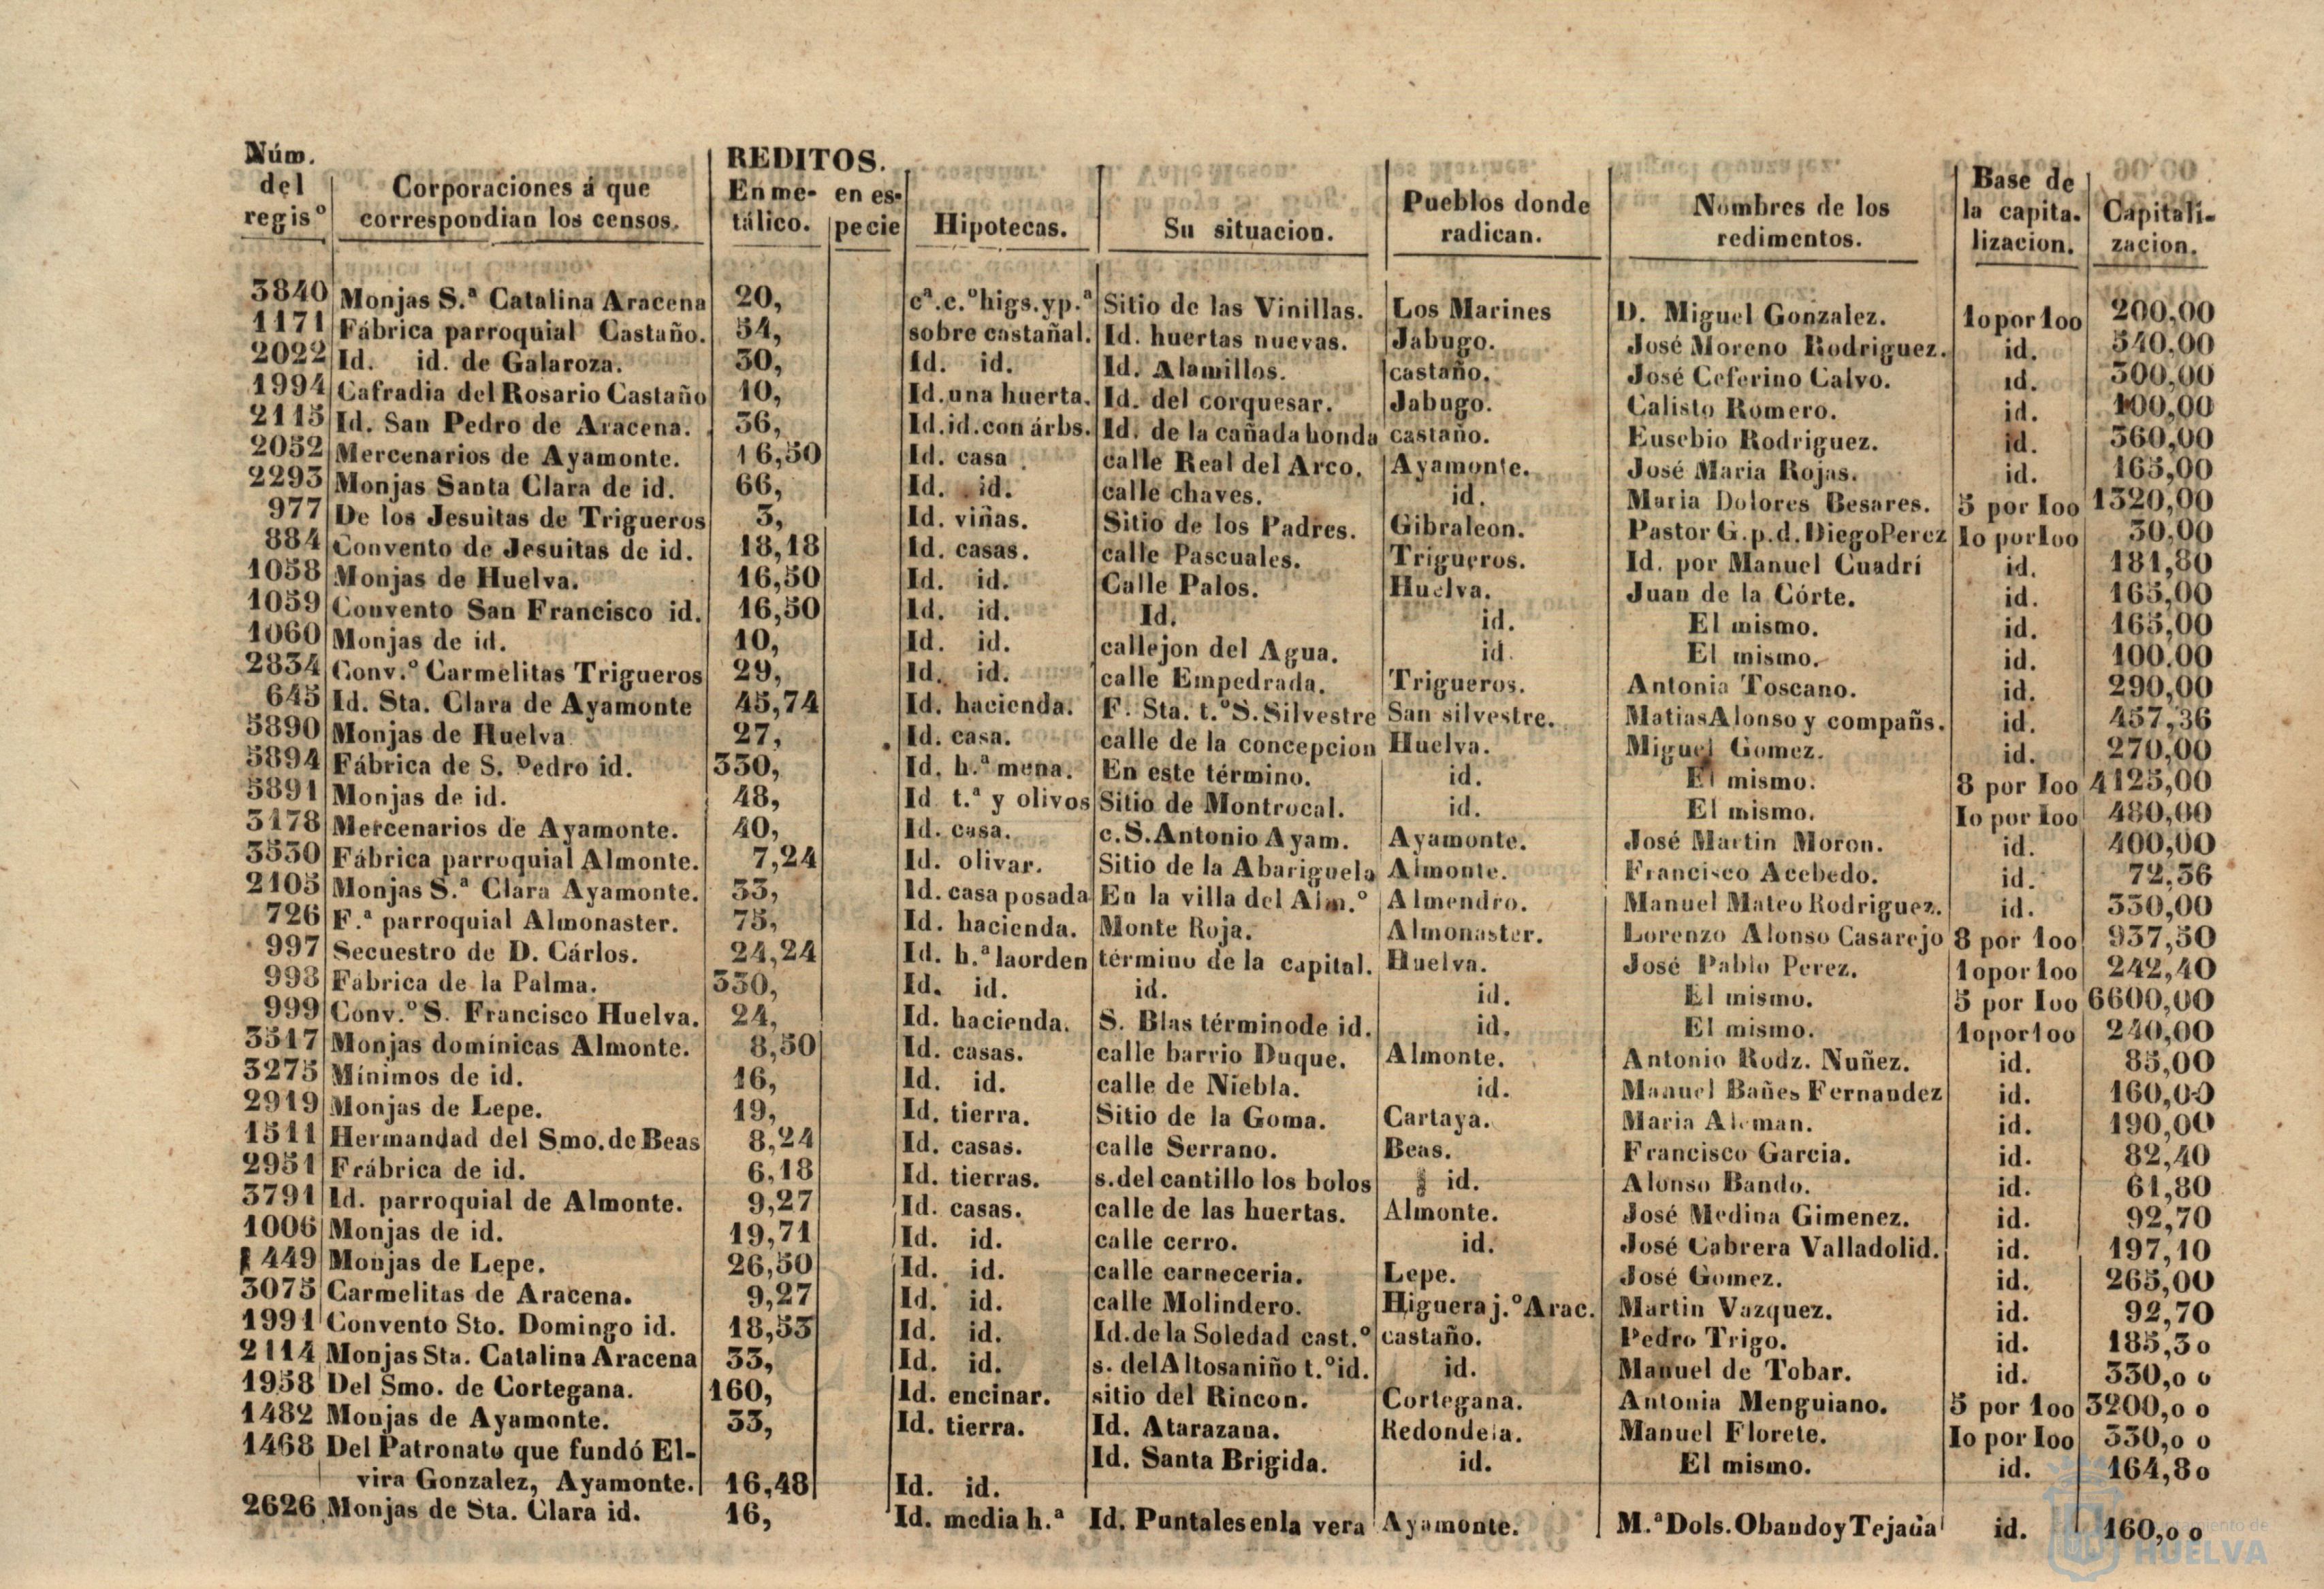 Núm. del regisº | Corporaciones á que correspondian los censos. | REDITOS. En metálico. | en especie | Hipotecas. | Su situacion. | Pueblos donde radican. | Nombres de los redimentos. | Base de la capitalizacion. | Capitalizacion.
3840 Monjas S.ª Catalina Aracena 20, cª.c.ºhigs.yp.ª Sitio de las Vinillas. Los Marines D. Miguel Gonzalez. 1opor1oo 200,00
1171 Fábrica parroquial Castaño. 54, sobre castañal. Id. huertas nuevas. Jabugo. José Moreno Rodriguez. id. 540,00
2022 Id. id. de Galaroza. 30, Id. id. Id. Alamillos. castaño. José Ceferino Calvo. id. 300,00
1994 Cafradia del Rosario Castaño 10, Id. una huerta. Id. del corquesar. Jabugo. Calisto Romero. id. 100,00
2115 Id. San Pedro de Aracena. 36, Id. id. con árbs. Id. de la cañada honda castaño. Eusebio Rodriguez. id. 360,00
2052 Mercenarios de Ayamonte. 16,50 Id. casa calle Real del Arco. Ayamonte. José Maria Rojas. id. 165,00
2293 Monjas Santa Clara de id. 66, Id. id. calle chaves. id. Maria Dolores Besares. 5 por Ioo 1320,00
977 De los Jesuitas de Trigueros 3, Id. viñas. Sitio de los Padres. Gibraleon. Pastor G.p.d. Diego Perez Io por1oo 30,00
884 Convento de Jesuitas de id. 18,18 Id. casas. calle Pascuales. Trigueros. Id. por Manuel Cuadrí id. 181,80
1058 Monjas de Huelva. 16,50 Id. id. Calle Palos. Huelva. Juan de la Córte. id. 165,00
1059 Convento San Francisco id. 16,50 Id. id. Id. id. El mismo. id. 165,00
1060 Monjas de id. 10, Id. id. callejon del Agua. id El mismo. id. 100.00
2834 Conv.º Carmelitas Trigueros 29, Id. id. calle Empedrada. Trigueros. Antonia Toscano. id. 290,00
645 Id. Sta. Clara de Ayamonte 45,74 Id. hacienda. F. Sta. t.ºS. Silvestre San silvestre. Matias Alonso y compañs. id. 457,36
5890 Monjas de Huelva 27, Id. casa. calle de la concepcion Huelva. Miguel Gomez. id. 270,00
5894 Fábrica de S. Pedro id. 330, Id. h.ª mena. En este término. id. El mismo. 8 por Ioo 4125,00
5891 Monjas de id. 48, Id t.ª y olivos Sitio de Montrocal. id. El mismo. Io por 1oo 480,00
3178 Mercenarios de Ayamonte. 40, Id. casa. c.S.Antonio Ayam. Ayamonte. José Martin Moron. id. 400,00
3530 Fábrica parroquial Almonte. 7,24 Id. olivar. Sitio de la Abariguela Almonte. Francisco Acebedo. id. 72,36
2105 Monjas S.ª Clara Ayamonte. 33, Id. casa posada En la villa del Alm.º Almendro. Manuel Mateo Rodriguez. id. 330,00
726 F.ª parroquial Almonaster. 75, Id. hacienda. Monte Roja. Almonaster. Lorenzo Alonso Casarejo 8 por 1oo 937,50
997 Secuestro de D. Cárlos. 24,24 Id. h.ª laorden término de la capital. Huelva. José Pablo Perez. 1opor1oo 242,40
998 Fabrica de la Palma. 330, Id. id. id. id. El mismo. 5 por Ioo 6600,00
999 Conv.º S. Francisco Huelva. 24, Id. hacienda. S. Blas términode id. id. El mismo. 1opor1oo 240,00
3517 Monjas domínicas Almonte. 8,50 Id. casas. calle barrio Duque. Almonte. Antonio Rodz. Nuñez. id. 85,00
3275 Mínimos de id. 16, Id. id. calle de Niebla. id. Manuel Bañes Fernandez id. 160,00
2919 Monjas de Lepe. 19, Id. tierra. Sitio de la Goma. Cartaya. Maria Aleman. id. 190,00
1511 Hermandad del Smo. de Beas 8,24 Id. casas. calle Serrano. Beas. Francisco Garcia. id. 82,40
2951 Frábrica de id. 6,18 Id. tierras. s.del cantillo los bolos id. Alonso Bando. id. 61,80
3791 Id. parroquial de Almonte. 9,27 Id. casas. calle de las huertas. Almonte. José Medina Gimenez. id. 92,70
1006 Monjas de id. 19,71 Id. id. calle cerro. id. José Cabrera Valladolid. id. 197,10
449 Monjas de Lepe. 26,50 Id. id. calle carneceria. Lepe. José Gomez. id. 265,00
3075 Carmelitas de Aracena. 9,27 Id. id. calle Molindero. Higuera j.º Arac. Martin Vazquez. id. 92,70
1991 Convento Sto. Domingo id. 18,53 Id. id. Id. de la Soledad cast.º castaño. Pedro Trigo. id. 185,3o
2114 Monjas Sta. Catalina Aracena 33, Id. id. s. del Altosaniño t.º id. id. Manuel de Tobar. id. 330,o o
1958 Del Smo. de Cortegana. 160, Id. encinar. sitio del Rincon. Cortegana. Antonia Menguiano. 5 por 1oo 3200,o o
1482 Monjas de Ayamonte. 33, Id. tierra. Id. Atarazana. Redondela. Manuel Florete. Io por Ioo 330,o o
1468 Del Patronato que fundó El-
vira Gonzalez, Ayamonte. 16,48 Id. id. Id. Santa Brigida. id. El mismo. id. 164,8o
2626 Monjas de Sta. Clara id. 16, Id. media h.ª Id. Puntales enla vera Ayamonte. M.ª Dols. Obando y Tejada id. 160,o o
Ayuntamiento de
HUELVA